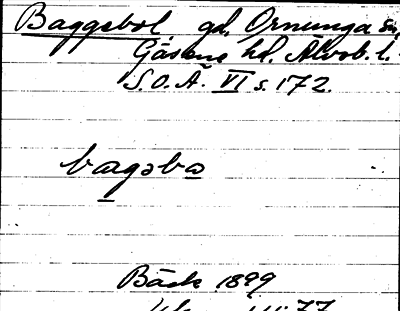 Baggebol gd. Ornunga sn,
Gäsene hd. Älvsb. l.
S.O.Ä. VI s. 172.
bagəbo
Bäck 1899